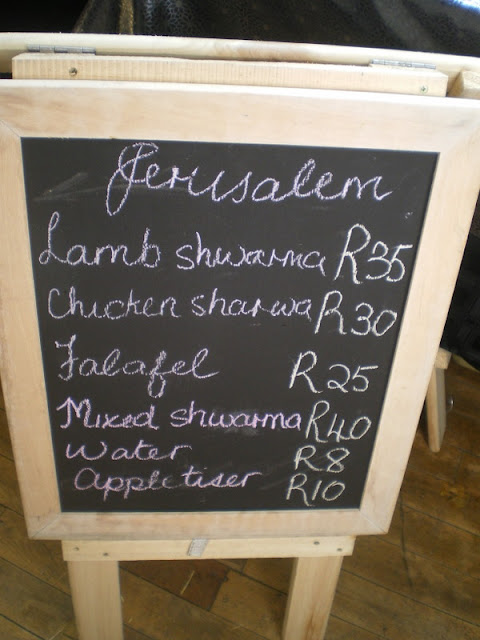 Jerusalem
Lamb shwarma R35
Chicken sharwa R30
Falafel R25
Mixed shwarma R40
Water R8
Appletiser R10